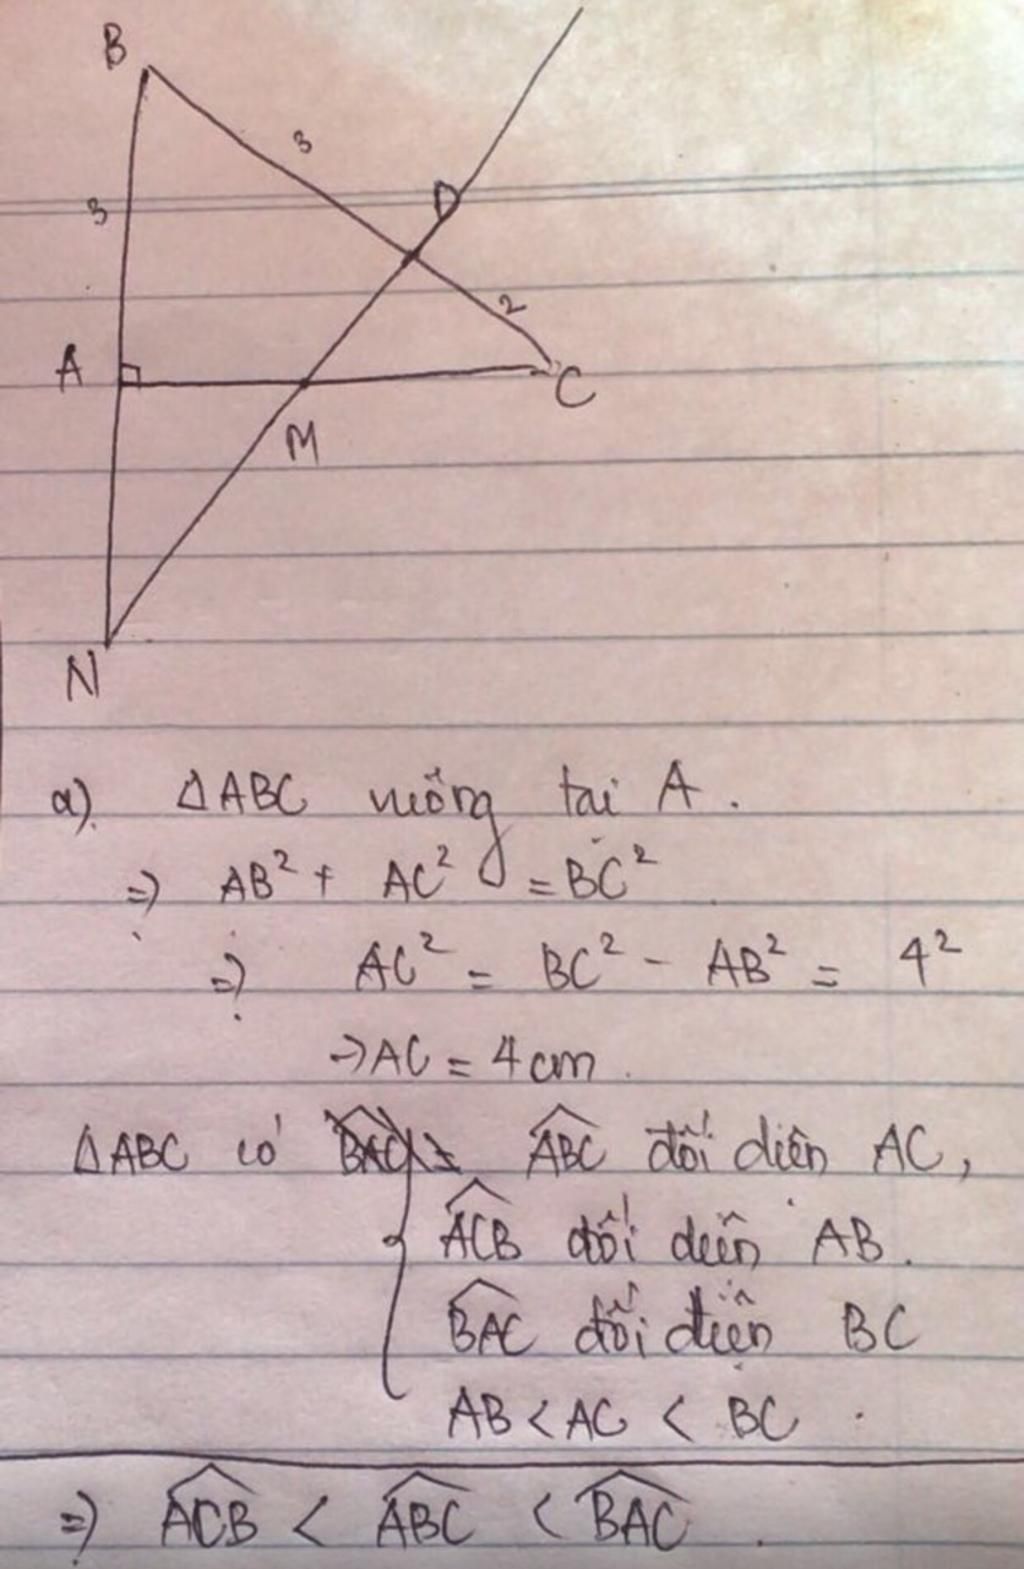 B
3
3
D
2
A
C
M
N
a) ΔABC vuông tại A.
=> AB² + AC² = BC²
=> AC² = BC² - AB² = 4²
=> AC = 4cm.
ΔABC có \widehat{ABC} đối diện AC,
\widehat{ACB} đối diện AB.
\widehat{BAC} đối diện BC
AB < AC < BC.
=> \widehat{ACB} < \widehat{ABC} < \widehat{BAC}.